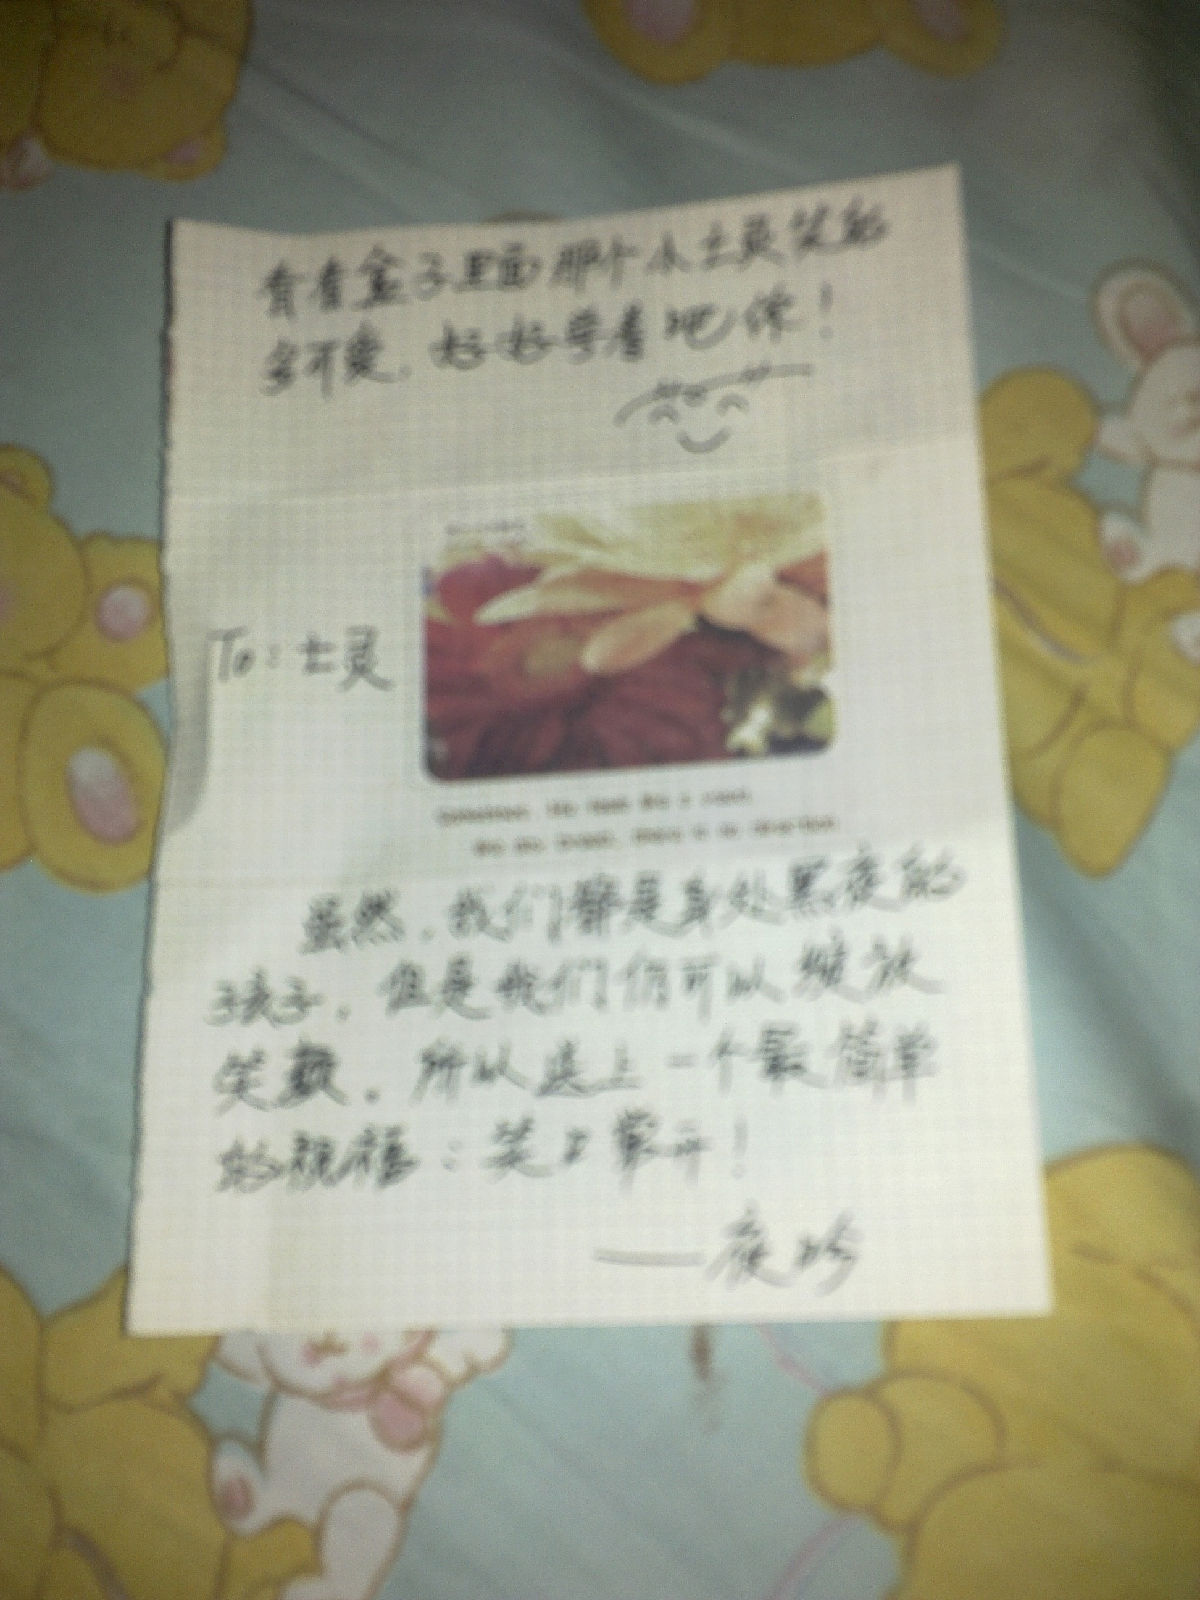 看看盒子里面那个小土灵笑的
多可爱，好好学着吧你！
To：土灵
虽然，我们都是身处黑夜的
孩子，但是我们仍可以绽放
笑颜，所以送上一个最简单
的祝福：笑口常开！
——夜吟